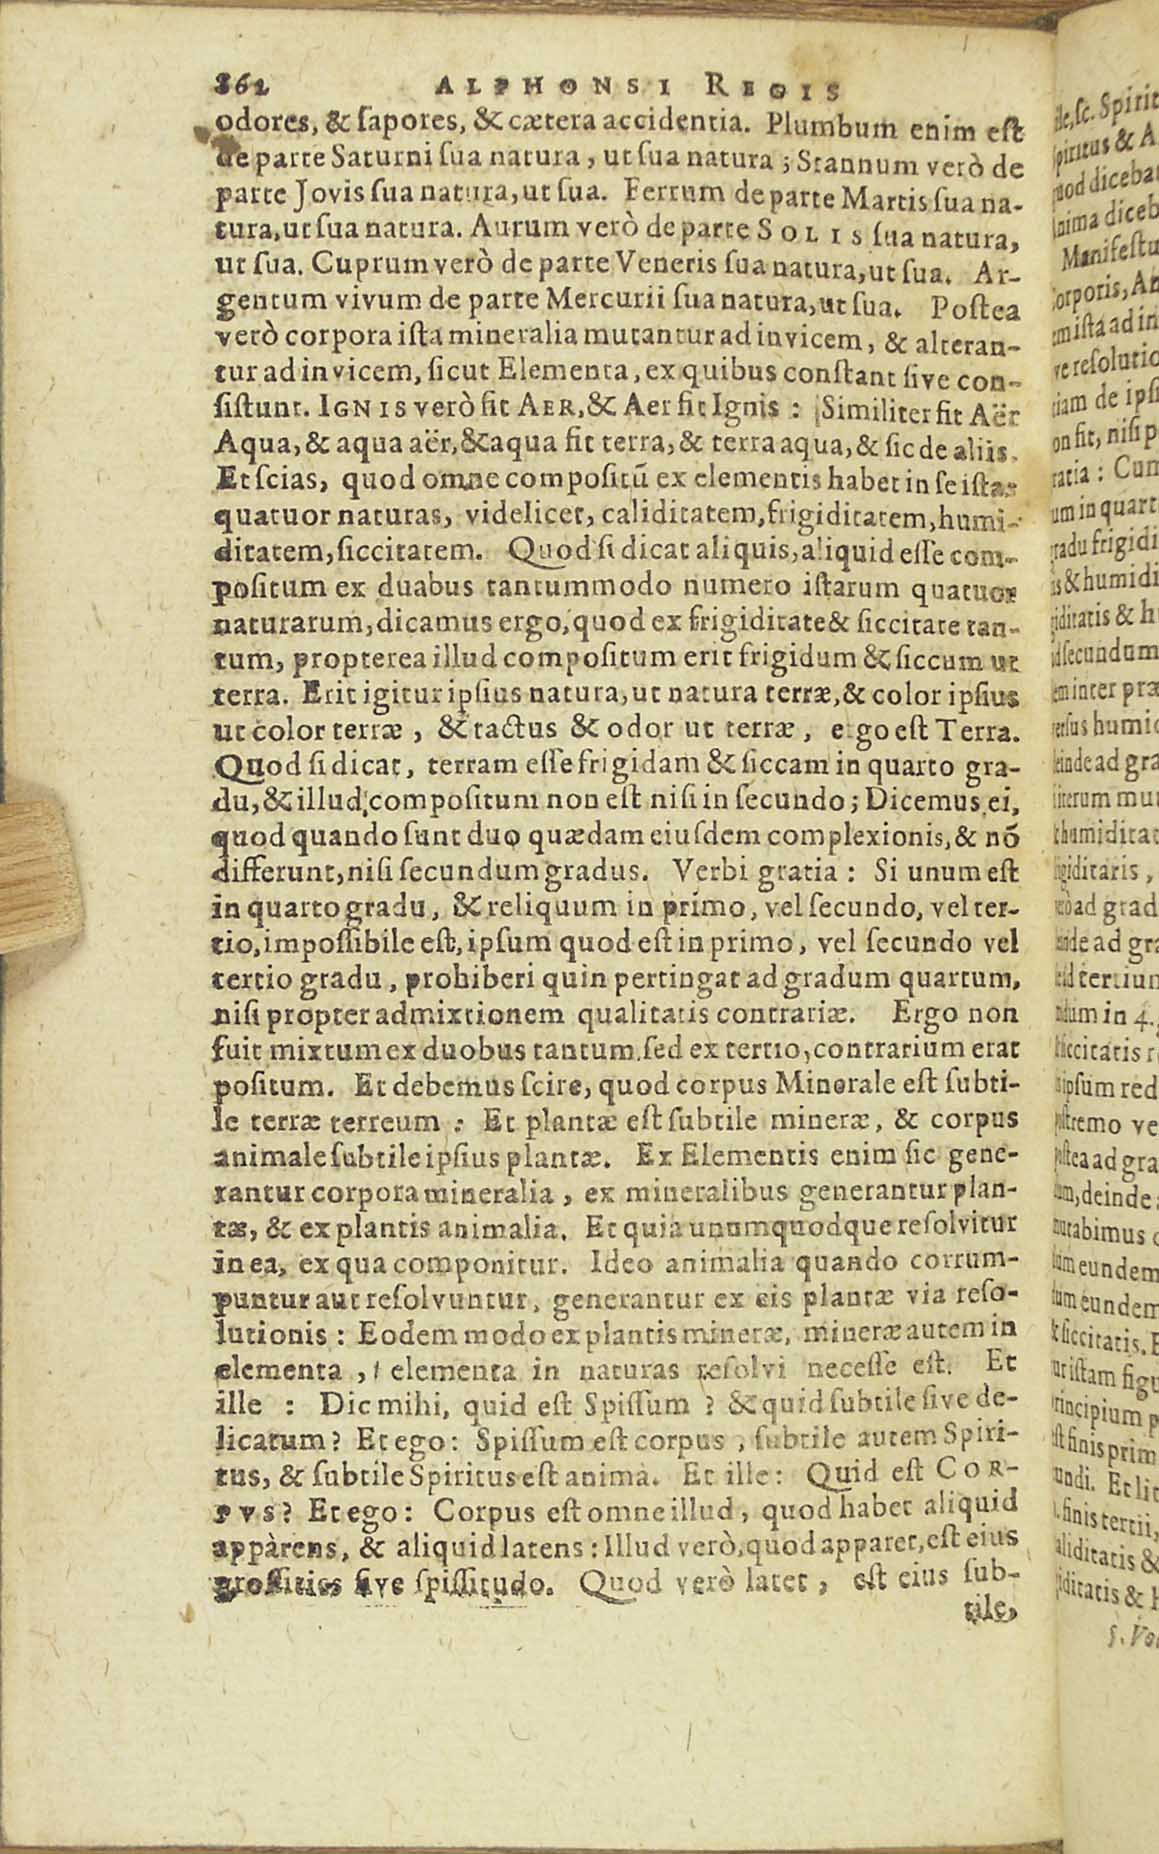 862 ALPHONSI REGIS
odores, & ſapores, & cætera accidentia. Plumbum enim eſt
de parte Saturni ſua natura, ut ſua natura; Stannum verò de
parte Jovis ſua natura, ut ſua. Ferrum de parte Martis ſua na-
tura, ut ſua natura. Aurum verò de parte SOLIS ſua natura,
ut ſua. Cuprum verò de parte Veneris ſua natura, ut ſua. Ar-
gentum vivum de parte Mercurii ſua natura, ut ſua. Poſtea
verò corpora iſta mineralia mutantur ad invicem, & alteran-
tur ad invicem, ſicut Elementa, ex quibus conſtant ſive con-
ſiſtunt. IGNIS verò fit AER, & Aer fit Ignis: Similiter fit Aër
Aqua, & aqua aër, & aqua fit terra, & terra aqua, & ſic de aliis.
Et ſcias, quod omne compoſitũ ex elementis habet in ſe iſtas
quatuor naturas, videlicet, caliditatem, frigiditatem, humi-
ditatem, ſiccitatem. Quod ſi dicat aliquis, aliquid eſſe com-
poſitum ex duabus tantummodo numero iſtarum quatuor
naturarum, dicamus ergo, quod ex frigiditate & ſiccitate tan-
tum, propterea illud compoſitum erit frigidum & ſiccum ut
terra. Erit igitur ipſius natura, ut natura terræ, & color ipſius
ut color terræ, & tactus & odor ut terræ, ergo eſt Terra.
Quod ſi dicat, terram eſſe frigidam & ſiccam in quarto gra-
du, & illud compoſitum non eſt niſi in ſecundo; Dicemus ei,
quod quando ſunt duo quædam eiuſdem complexionis, & nõ
differunt, niſi ſecundum gradus. Verbi gratia: Si unum eſt
in quarto gradu, & reliquum in primo, vel ſecundo, vel ter-
tio, impoſſibile eſt, ipſum quod eſt in primo, vel ſecundo vel
tertio gradu, prohiberi quin pertingat ad gradum quartum,
niſi propter admixtionem qualitatis contrariæ. Ergo non
fuit mixtum ex duobus tantum, ſed ex tertio, contrarium erat
poſitum. Et debemus ſcire, quod corpus Minerale eſt ſubti-
le terræ terreum: Et plantæ eſt ſubtile mineræ, & corpus
animale ſubtile ipſius plantæ. Ex Elementis enim ſic gene-
rantur corpora mineralia, ex mineralibus generantur plan-
tæ, & ex plantis animalia. Et quia unumquodque reſolvitur
in ea, ex qua componitur. Ideo animalia quando corrum-
puntur aut reſolvuntur, generantur ex eis plantæ via reſo-
lutionis: Eodem modo ex plantis mineræ, mineræ autem in
elementa, elementa in naturas reſolvi neceſſe eſt. Et
ille: Dic mihi, quid eſt Spiſſum? & quid ſubtile ſive de-
licatum? Et ego: Spiſſum eſt corpus, ſubtile autem Spiri-
tus, & ſubtile Spiritus eſt anima. Et ille: Quid eſt COR-
PVS? Et ego: Corpus eſt omne illud, quod habet aliquid
appàrens, & aliquid latens: Illud verò, quod apparet, eſt eius
groſſities ſive ſpiſſitudo. Quod verò latet, eſt eius ſub-
tile,